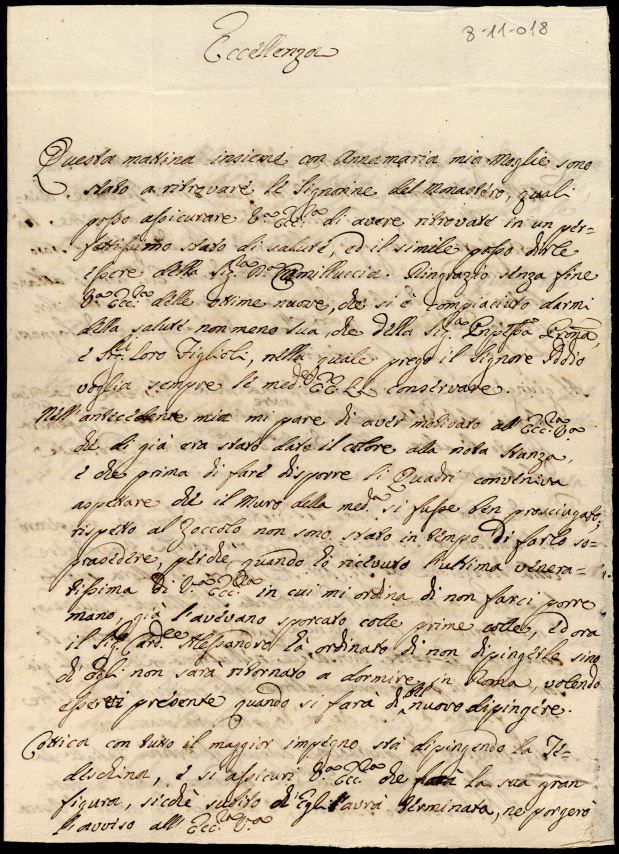 8-11-018
Eccellenza
Questa mattina insieme con Annamaria mia Moglie sono
stato a ritrovare le Signorine del Monastero, quali
posso assicurare V.ra Ecc.za di avere ritrovate in un per-
fettissimo stato di salute, ed il simile posso dirle
essere della Sig.ra D.a Camilluccia. Ringrazio senza fine
V.ra Ecc.za delle ottime nuove, che si è compiaciuto darmi
della salute non meno sua, che della Sig.a Pnpessa Prona,
e loro Figlioli, nella quale prego il Signore Iddio
voglia sempre le med.e EE. LL. conservare.
Nell'antecedente mia mi pare di aver motivato all'Ecc.za V.ra
che di già era stato dato il colore alla nota stanza,
e che prima di fare disporre li Quadri conveniva
aspettare che il Muro della med.a si fusse ben prosciugato,
rispetto al Zoccolo non sono stato in tempo di farlo so-
prasedere, perche quando hò ricevuto l'ultima venera-
tissima di V.ra Ecc.za in cui mi ordina di non farci porre
mano, già l'avevano sporcato colle prime colle, ed ora
il Sig. Card.le Alessandro hà ordinato di non dipingerle sino
ch'egli non sarà ritornato a dormire in Roma, volendo
esserci presente quando si farà di nuovo dipingere.
Cottica con tutto il maggior impegno stà dipingendo la Te-
deschina, e si assicuri V.ra Ecc.za che farà la sua gran
figura, sicchè subito ch'Egli l'avrà terminata, ne porgerò
l'avviso all'Ecc.za V.ra